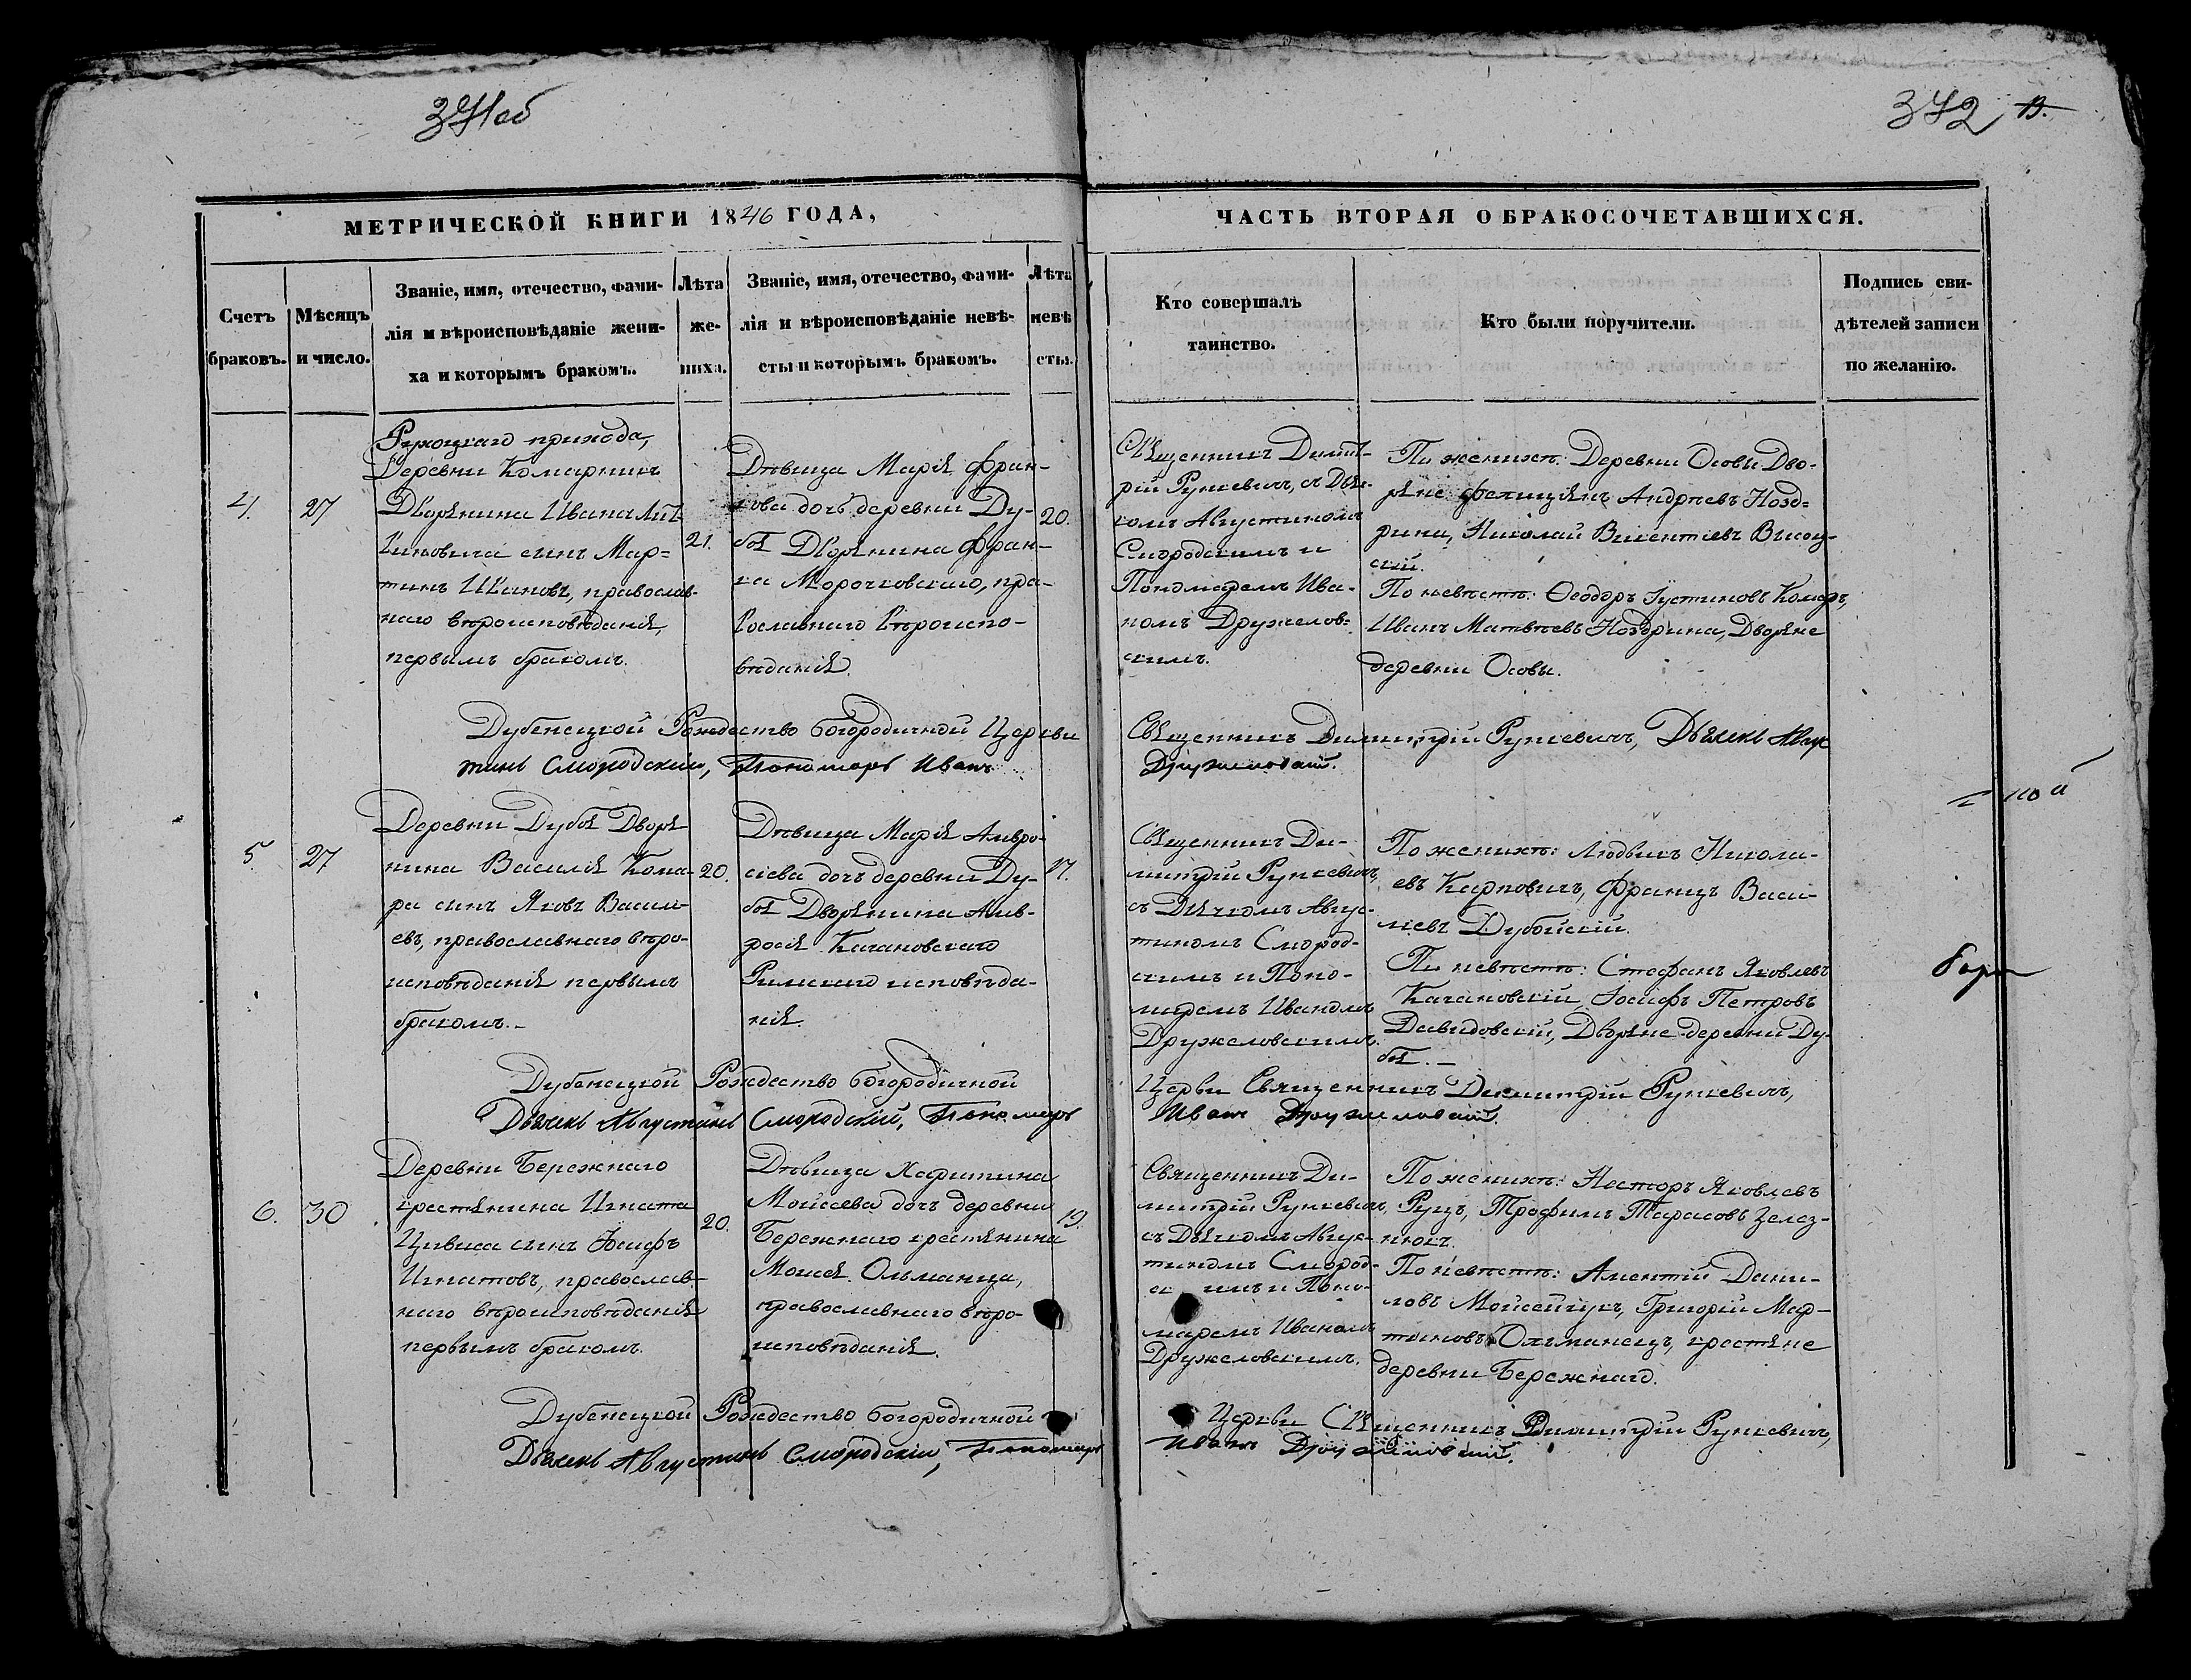 371об
372 13.
МЕТРИЧЕСКОЙ КНИГИ 1846 ГОДА,
ЧАСТЬ ВТОРАЯ О БРАКОСОЧЕТАВШИХСЯ.
Счетъ
браковъ.
Мѣсяцъ
и число.
Званіе, имя, отечество, фами-
лія и вѣроисповѣданіе жени-
ха и которымъ бракомъ.
Лѣта
же-
ниха.
Званіе, имя, отечество, фами-
лія и вѣроисповѣданіе невѣ-
сты и которымъ бракомъ.
Лѣта
невѣ
сты.
Кто совершалъ
таинство.
Кто были поручители.
Подпись сви-
дѣтелей записи
по желанію.
4.
27
прихода,
Деревни Комарничь
Дворянина Ивана
синъ Мар=
тинъ Ивановъ, православ-
наго вѣроисповѣданія,
первымъ бракомъ.
21.
Дѣвица Марія Фран-
кова дочь деревни Ду-
боя Дворянина Фран-
ка Морочковскаго, пра-
вославнаго вѣроиспо-
вѣданія.
20.
Священникъ Димит-
рій Рункевичъ, съ Дья-
комъ Августиномъ
Смородскимъ и
Пономаремъ Ива-
номъ Дружелов=
скимъ.
По женихѣ: Деревни Осовы Дво-
ряне Фелиціянъ Андреевъ Нозд=
рина, Николай Викентіевъ Высоц-
кій.
По невѣстѣ: Ѳеодоръ Іустиновъ Комаръ,
Иванъ Матвѣевъ Ноздрина, Дворяне
деревни Осовы.
Дубенецкой Рождество Богородичной Церкви
Священникъ Димитрій Рункевичъ, Дьячекъ Авгус
тинъ Смородскій, Пономарь Иванъ
Дружиловскій.
5.
27
Деревни Дубоя Дворя-
нина Василія Кома-
ра синъ Яковъ Васили-
евъ, православнаго вѣро-
исповѣданія первымъ
бракомъ.-
20.
Дѣвица Марія Амвро-
сіева дочь деревни Ду-
боя Дворянина Амв-
росія Качановскаго
Римскаго исповѣда-
нія.
17.
Священникъ Ди-
митрій Рункевичъ,
съ Дьячкомъ Авгус-
тиномъ Смород-
скимъ и Поно-
маремъ Иваномъ
Дружеловскимъ.
По женихѣ: Людвикъ Никола-
евъ Карповичъ, Францъ Васи-
ліевъ Дубойскій.
По невѣстѣ: Стефанъ Яковлевъ
Качановскій, Іосифъ Петровъ
Давидовскій, Дворяне деревни Ду-
боя.-
Дубенецкой Рождество Богородичной
Церкви Священникъ Димитрій Рункевичъ,
Дьячекъ Августинъ Смородскій, Пономарь
Иванъ Дружиловскій.
6.
30
Деревни Бережнаго
крестянина Игната
Цивиса синъ Іосифъ
Игнатовъ, православ-
наго вѣроисповѣданія
первымъ бракомъ.
20.
Дѣвица Харитина
Моисеева дочь деревни
Бережнаго крестянина
Моисея Ольманца,
православнаго вѣро-
исповѣданія.
19.
Священникъ Ди-
митрій Рункевичъ,
съ Дьячкомъ Авгус-
тиномъ Смород-
скимъ и Поно-
маремъ Иваномъ
Дружеловскимъ.
По женихѣ: Несторъ Яковлевъ
Руцъ, Трофимъ Тарасовъ Целез-
нюкъ.
По невѣстѣ: Аментій Дани-
ловъ Мойсейчукъ, Григорій Мар-
тиновъ Ольманецъ, крестяне
деревни Бережнаго.
Дубенецкой Рождество Богородичной
Церкви Священникъ Димитрій Рункевичъ,
Дьячекъ Августинъ Смородскій, Пономарь
Иванъ Дружиловскій.